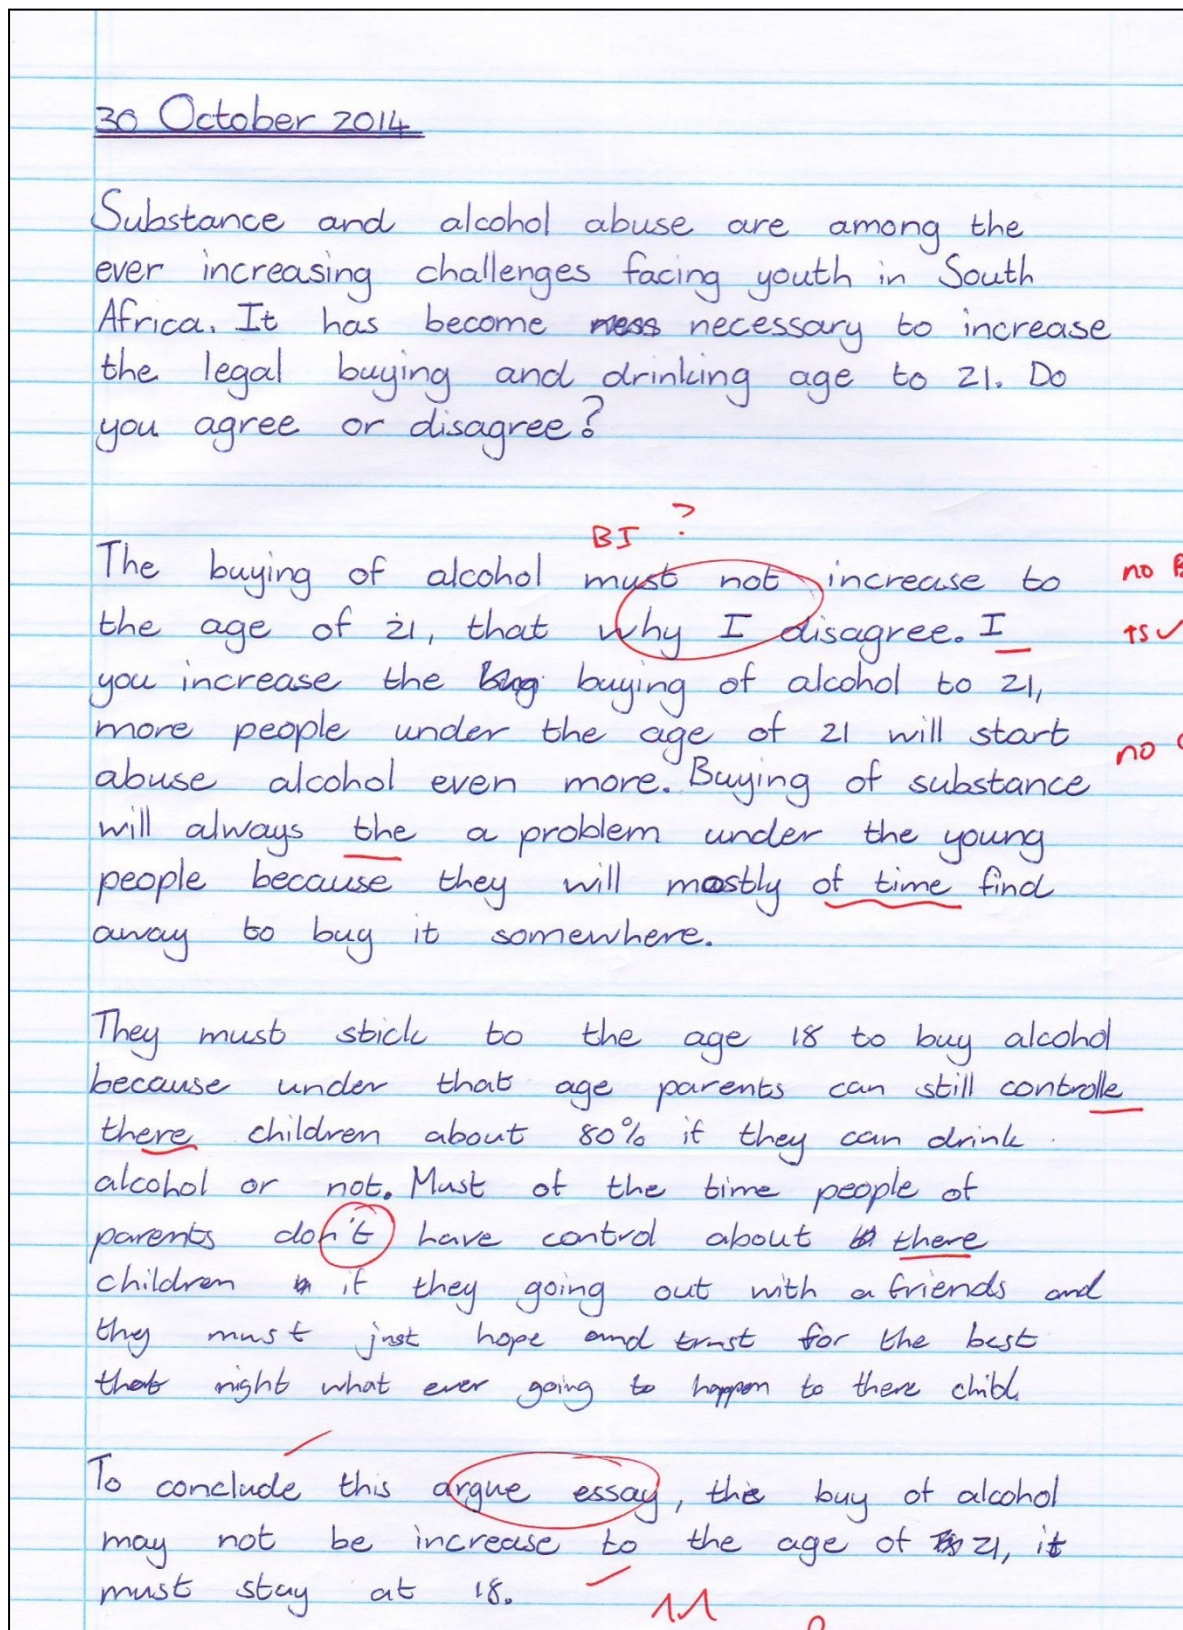 30 October 2014
Substance and alcohol abuse are among the
ever increasing challenges facing youth in South
Africa. It has become necessary to increase
the legal buying and drinking age to 21. Do
you agree or disagree?
BI ?
The buying of alcohol must not increase to
no
the age of 21, that why I disagree. I
ts ✓
you increase the buying of alcohol to 21,
more people under the age of 21 will start
no
abuse alcohol even more. Buying of substance
will always the a problem under the young
people because they will mostly of time find
away to buy it somewhere.
They must stick to the age 18 to buy alcohol
because under that age parents can still controlle
there children about 80% if they can drink
alcohol or not. Must of the time people of
parents don't have control about there
children if they going out with a friends and
they must just hope and trust for the best
that night what ever going to happen to there child.
To conclude this argue essay, the buy of alcohol
may not be increase to the age of 21, it
must stay at 18.